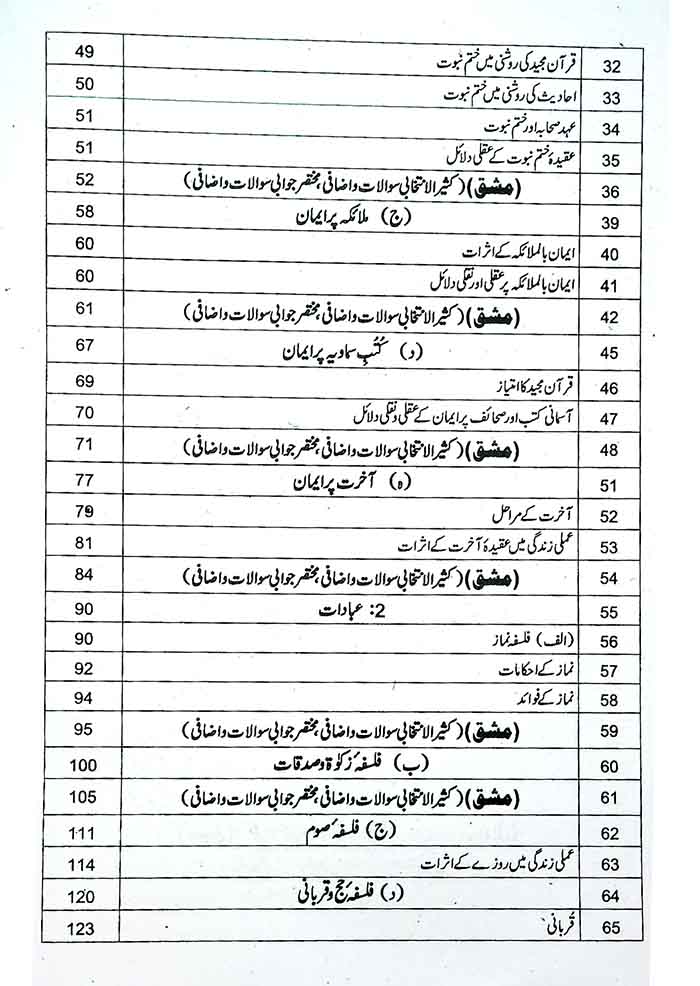 32 قرآن مجید کی روشنی میں ختم نبوت 49
33 احادیث کی روشنی میں ختم نبوت 50
34 عہد صحابہ اور ختم نبوت 51
35 عقیدۂ ختم نبوت کے عقلی دلائل 51
36 (مشق) (کثیر الانتخابی سوالات و اضافی، مختصر جوابی سوالات و اضافی) 52
39 (ج) ملائکہ پر ایمان 58
40 ایمان بالملائکہ کے اثرات 60
41 ایمان بالملائکہ پر عقلی اور نقلی دلائل 60
42 (مشق) (کثیر الانتخابی سوالات و اضافی، مختصر جوابی سوالات و اضافی) 61
45 (د) کُتُبِ سماویہ پر ایمان 67
46 قرآن مجید کا امتیاز 69
47 آسمانی کتب اور صحائف پر ایمان کے عقلی و نقلی دلائل 70
48 (مشق) (کثیر الانتخابی سوالات و اضافی، مختصر جوابی سوالات و اضافی) 71
51 (ہ) آخرت پر ایمان 77
52 آخرت کے مراحل 79
53 عملی زندگی میں عقیدۂ آخرت کے اثرات 81
54 (مشق) (کثیر الانتخابی سوالات و اضافی، مختصر جوابی سوالات و اضافی) 84
55 2: عبادات 90
56 (الف) فلسفہ نماز 90
57 نماز کے احکامات 92
58 نماز کے فوائد 94
59 (مشق) (کثیر الانتخابی سوالات و اضافی، مختصر جوابی سوالات و اضافی) 95
60 (ب) فلسفۂ زکوٰۃ و صدقات 100
61 (مشق) (کثیر الانتخابی سوالات و اضافی، مختصر جوابی سوالات و اضافی) 105
62 (ج) فلسفۂ صوم 111
63 عملی زندگی میں روزے کے اثرات 114
64 (د) فلسفۂ حج و قربانی 120
65 قُربانی 123